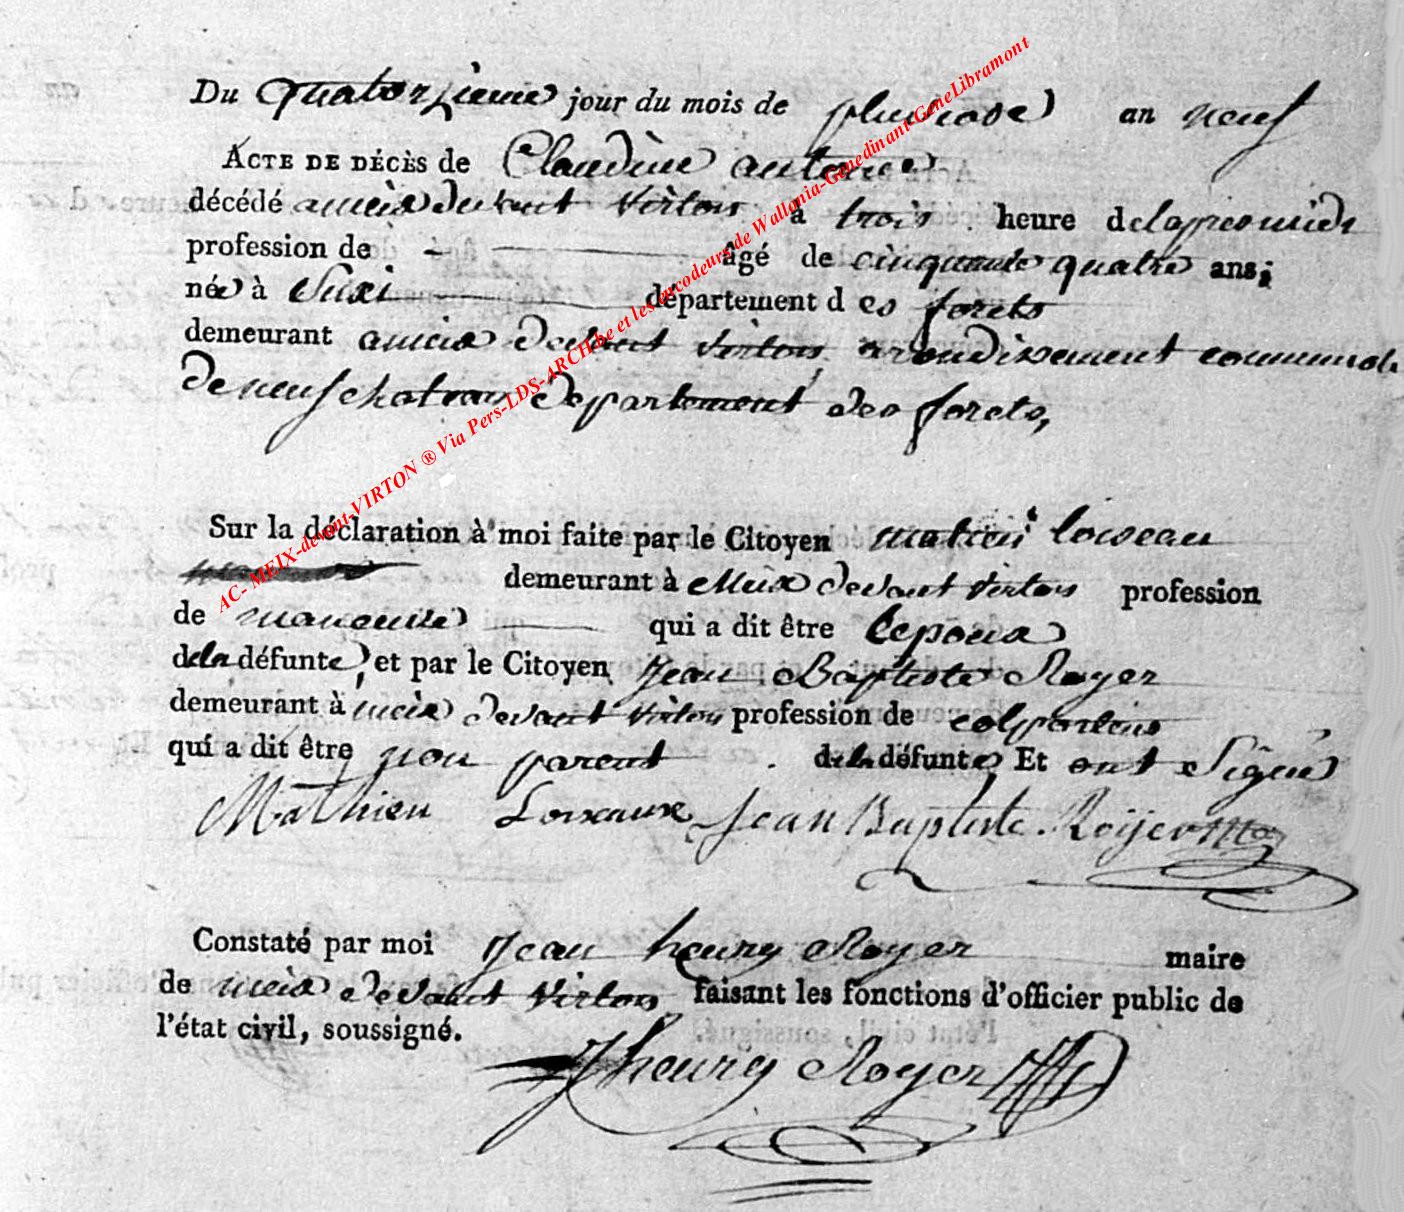 Du quatorzieme jour du mois de pluviose an neuf
ACTE DE DÉCÈS de Claudine antoine
décédé a meix devant virton à trois heure de lapresmidi
profession de - âgé de cinquante quatre ans;
née à Suxi département des forets
demeurant a meix devant virton arondisement communal
de neufchatau departement des forets,
Sur la déclaration à moi faite par le Citoyen loiseau
demeurant à Meix devant virton profession
de maneuvre qui a dit être lepoux
de la défunte, et par le Citoyen Jean Baptiste Royer
demeurant à meix devant virton profession de colporteur
qui a dit être non parent . de la défunte Et ont Signé
Mathieu Loixaux Jean Baptiste Roÿer
Constaté par moi Jean henry Royer maire
de meix devant virton faisant les fonctions d'officier public de
l'état civil, soussigné.
J henry Royer
AC- MEIX-devant-VIRTON ® Via Pers-LDS-ARCH.be et les encodeurs de Wallonia-Genedinant-GeneLibramont